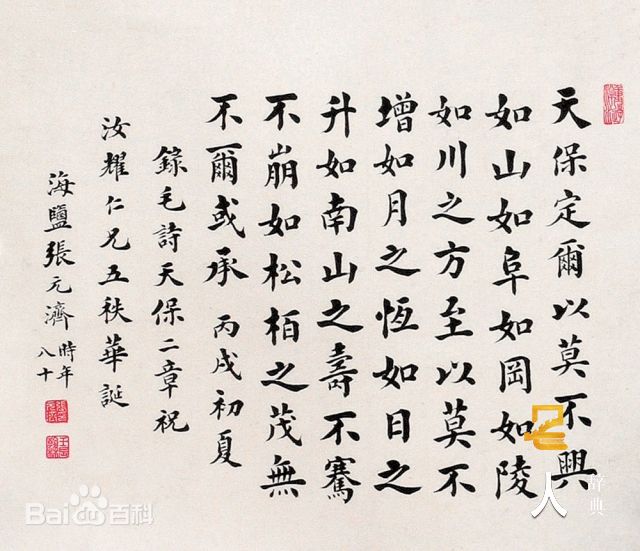 天保定爾以莫不興
如山如阜如岡如陵
如川之方至以莫不
增如月之恆如日之
升如南山之壽不騫
不崩如松柏之茂無
不爾或承 丙戌初夏
錄毛詩天保二章祝
汝耀仁兄五秩華誕
海鹽張元濟 時年八十
Bai百科
人 辞典